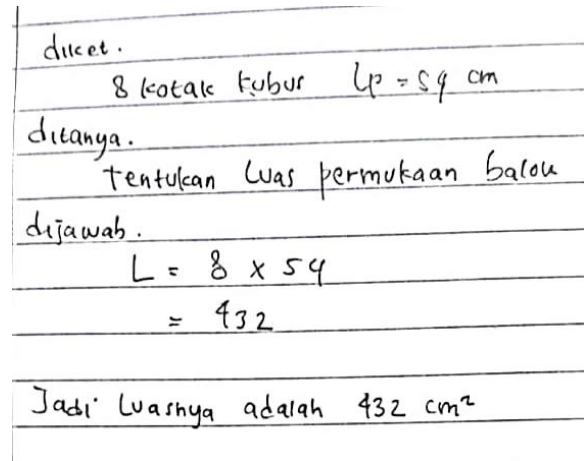 diket.
8 kotak kubus Lp = 54 cm
ditanya.
Tentukan Luas permukaan balok
dijawab.
L = 8 x 54
= 432
Jadi Luasnya adalah 432 cm²